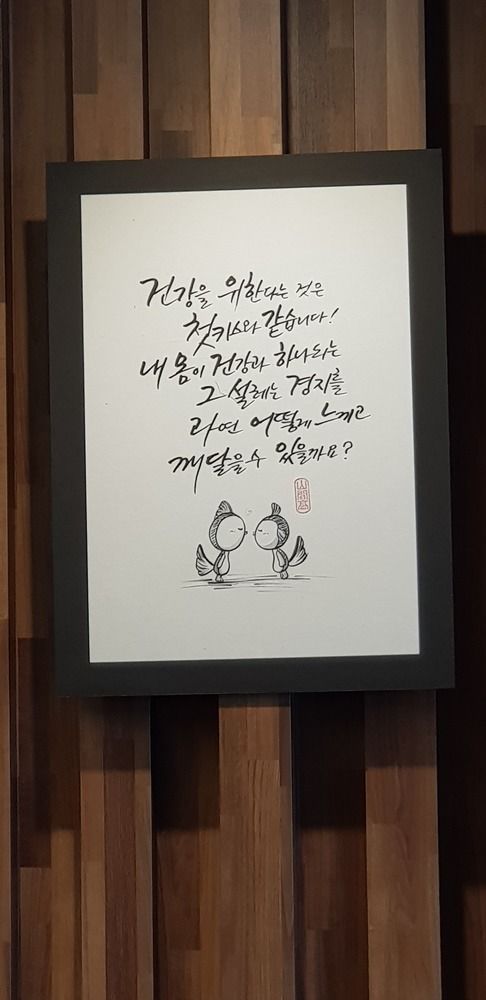 건강을 위한다는 것은
첫키스와 같습니다!
내 몸이 건강과 하나되는
그 설레는 경지를
과연 어떻게 느끼고
깨달을 수 있을까요?